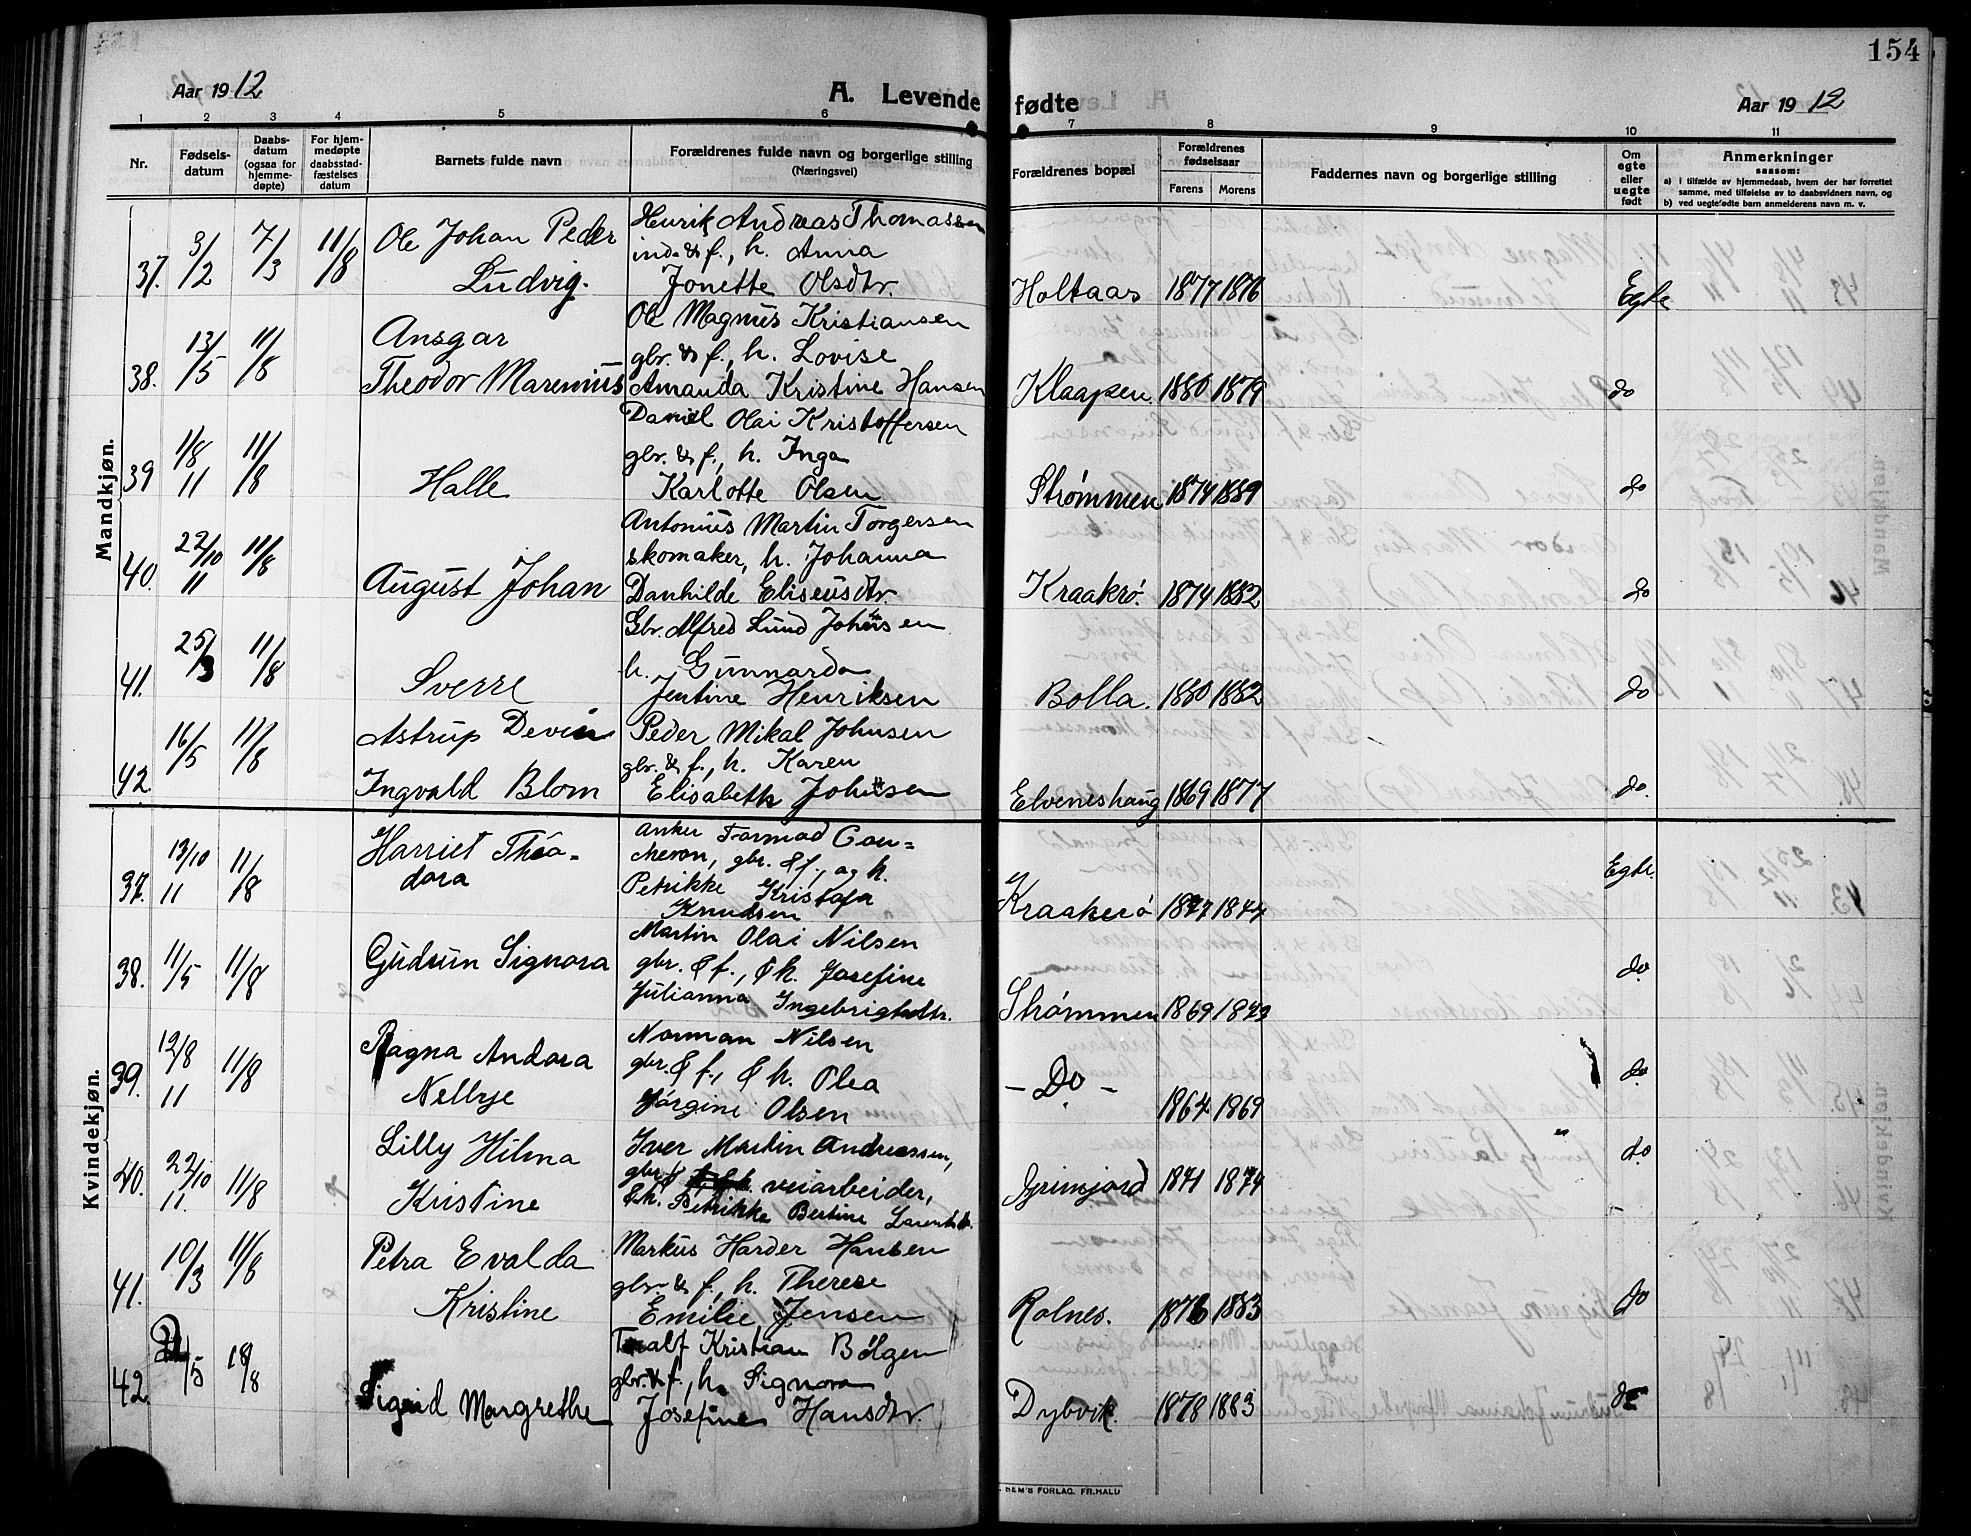 154
Aar 1912
A. Levende fødte
Aar 1912
1 2 3 4 5 6 7 8 9 10 11
Nr.
Fødsels-
datum
Daabs-
datum
(ogsaa for
hjemme-
døpte)
For hjem-
medøpte
daabsstad-
fæstelses
datum
Barnets fulde navn
Forældrenes fulde navn og borgerlige stilling
(Næringsvei)
Forældrenes bopæl
Forældrenes
fødselsaar
Farens Morens
Faddernes navn og borgerlige stilling
Om
egte
eller
uegte
født
Anmerkninger
saasom:
a) i tilfælde av hjemmedaab, hvem der har forrettet
samme, med tilføielse av to daabsvidners navn, og
b) ved uegtefødte barn anmelderens navn m. v.
Mandkjøn.
37. 3/2 7/3 11/8 Ole Johan Peder
Ludvig.
Henrik Andreas Thomassen
ind. & f., h. Anna
Jonette Olsdtr.
Holtaas 1877 1876 Egte
38. 13/5 11/8 Ansgar
Theodor Marenius
Ole Magnus Kristiansen
gbr. & f., h. Lovise
Amanda Kristine Hansen
Klaapen 1880 1879 do
39 1/8 11 11/8 Halle
Daniel Olai Kristoffersen
gbr. & f., h. Inga
Karlotte Olsen
Strømmen 1874 1889 do
40. 22/10 11 11/8 August Johan
Antonius Martin Torgersen
skomaker, h. Johanna
Danhilde Eliseusdtr.
Kraakrø. 1874 1882 do
41. 25/3 11/8 Sverre
Gbr. Alfred Lund Johnsen
h. Gunnarda
Jentine Henriksen
Bolla. 1880 1882 do
42 16/5 11/8 Astrup Devin
Ingvald Blom
Peder Mikal Johnsen
gbr. & f., h. Karen
Elisabeth Johnsen
Elveneshaug 1869 1877 do.
Kvindekjøn.
37. 13/10 11 11/8 Harriet Theo-
dora
Anker Tormod Con-
meron, gbr. & f., og h.
Petrikke Kristofa
Knudsen
Kraakerø 1877 1874 Egte.
38. 11/5 11/8 Gudrun Signora
Martin Olai Nilsen
gbr. & f., & h. Josefine
Julianna Ingebrigtsdtr.
Strømmen 1869 1873 do
39. 12/8 11 11/8 Ragna Andora
Nellye
Norman Nilsen
gbr. & f., & h. Olea
Jørgine Olsen
- Do - 1864 1869 do
40. 22/10 11. 11/8 Lilly Hilma
Kristine
Iver Martin Andreassen,
gbr. & veiarbeider,
& h. Petrikke Bertine Larentsdtr.
Grimjord 1871 1874 do
41. 10/3 11/8 Petra Evalda
Kristine
Markus Harder Hansen
gbr. & f., h. Therese
Emilie Jensen
Rolnes. 1876 1883 do
42 /5 18/8 Sigrid Margrethe
Toralf Kristian Bölgen
gbr. & f., h. Signora
Josefine Hansdtr.
Dybvik. 1878 1883 do
NEM'S FORLAG. FR.HALD